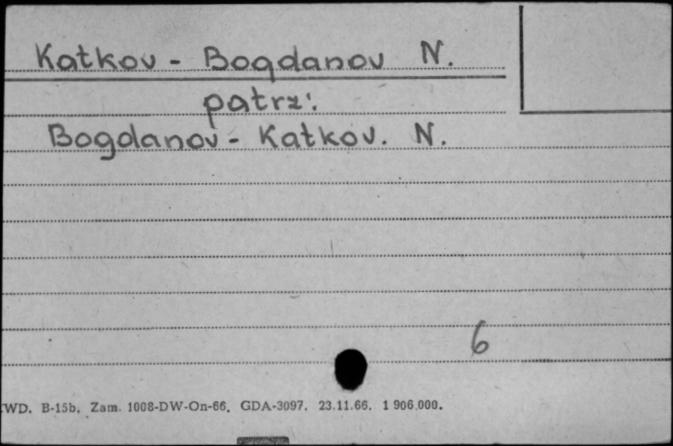 Katkov - Bogdanov N.
patrz:
Bogdanov - Katkov. N.
6
WD. B-15b. Zam. 1008-DW-On-66. GDA-3097. 23.11.66. 1 906.000.